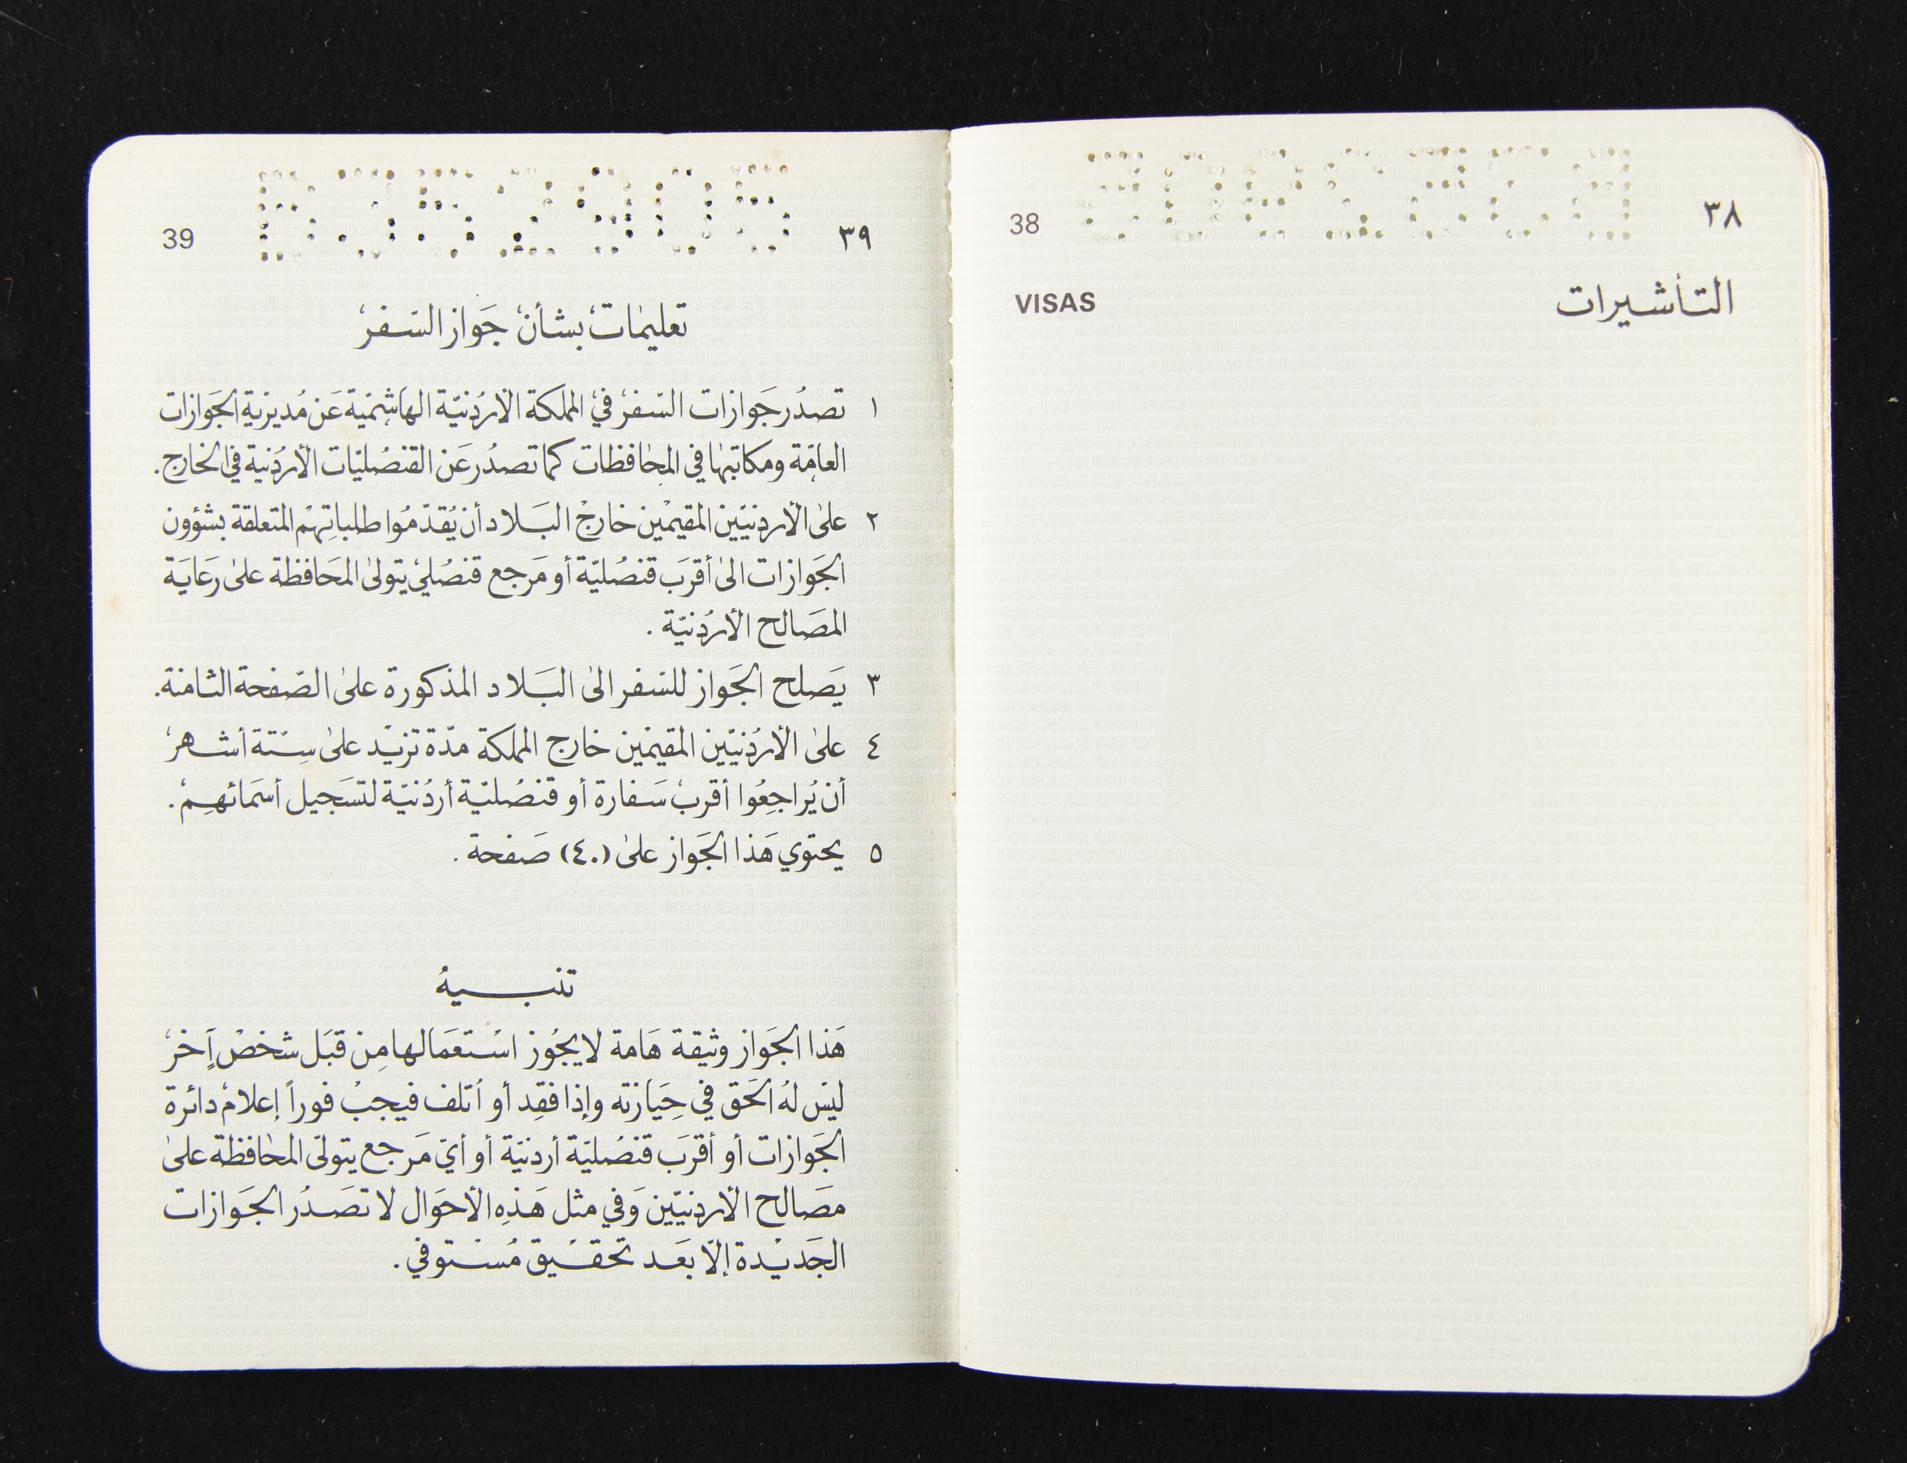 38
٣٨
VISAS
التأشيرات
39
٣٩
تعليمات بشأن جواز السفر
١ تصدر جوازات السفر في المملكة الأردنية الهاشمية عن مديرية الجوازات
العامة ومكاتبها في المحافظات كما تصدر عن القنصليات الأردنية في الخارج.
٢ على الأردنيين المقيمين خارج البلاد أن يقدموا طلباتهم المتعلقة بشؤون
الجوازات الى أقرب قنصلية أو مرجع قنصلي يتولى المحافظة على رعاية
المصالح الأردنية.
٣ يصلح الجواز للسفر الى البلاد المذكورة على الصفحة الثامنة.
٤ على الأردنيين المقيمين خارج المملكة مدة تزيد على ستة أشهر
أن يراجعوا أقرب سفارة أو قنصلية أردنية لتسجيل أسمائهم.
٥ يحتوي هذا الجواز على (٤٠) صفحة.
تنبيه
هذا الجواز وثيقة هامة لا يجوز استعمالها من قبل شخص آخر
ليس له الحق في حيازته وإذا فقد أو أتلف فيجب فوراً إعلام دائرة
الجوازات أو أقرب قنصلية أردنية أو أي مرجع يتولى المحافظة على
مصالح الأردنيين وفي مثل هذه الأحوال لا تصدر الجوازات
الجديدة إلا بعد تحقيق مستوفي.